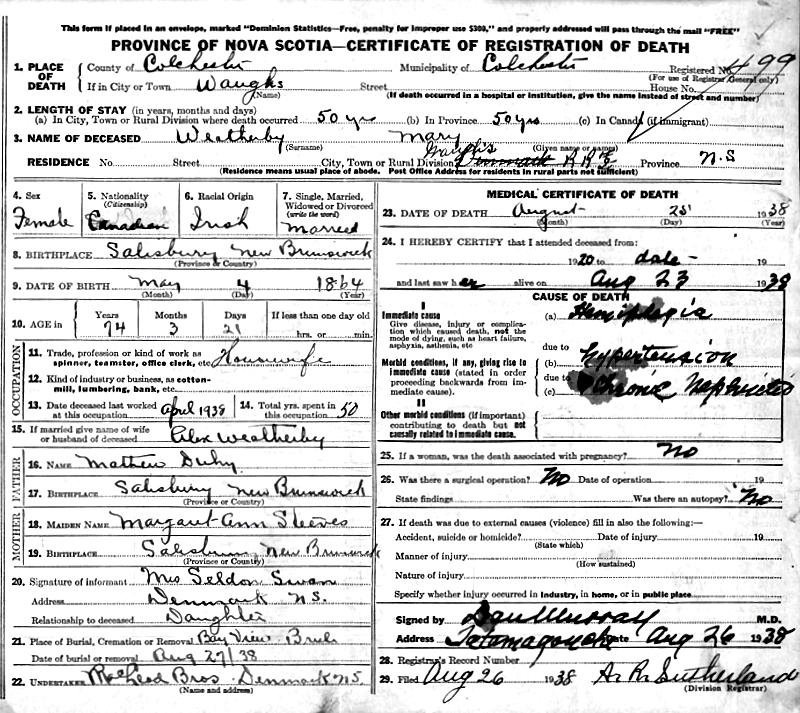 This form if placed in an envelope, marked "Dominion Statistics—Free, penalty for improper use $300," and properly addressed will pass through the mail "FREE"
PROVINCE OF NOVA SCOTIA—CERTIFICATE OF REGISTRATION OF DEATH
1. PLACE OF DEATH
County of Colchester Municipality of Colchester Registered No. 499
(For use of Registrar General only)
If in City or Town Waughs Street House No.
(Name) (If death occurred in a hospital or institution, give the name instead of street and number)
2. LENGTH OF STAY (in years, months and days)
(a) In City, Town or Rural Division where death occurred 50 yrs (b) In Province 50 yrs (c) In Canada (if immigrant)
3. NAME OF DECEASED Weatherby Mary
(Surname) (Given name or names)
RESIDENCE No. Street City, Town or Rural Division Waughs Denmark R R Province N.S
(Residence means usual place of abode. Post Office Address for residents in rural parts not sufficient)
4. Sex
Female
5. Nationality (Citizenship)
Canadian
6. Racial Origin
Irish
7. Single, Married, Widowed or Divorced (write the word)
Married
8. BIRTHPLACE Salisbury New Brunswick
(Province or Country)
9. DATE OF BIRTH May 4 1864
(Month) (Day) (Year)
10. AGE in Years Months Days If less than one day old
74 3 21 hrs. or min.
OCCUPATION
11. Trade, profession or kind of work as spinner, teamster, office clerk, etc. Housewife
12. Kind of industry or business, as cotton-mill, lumbering, bank, etc.
13. Date deceased last worked at this occupation April 1938
14. Total yrs. spent in this occupation 50
15. If married give name of wife or husband of deceased Alex Weatherby
FATHER
16. NAME Mathew Duhy
17. BIRTHPLACE Salisbury New Brunswick
(Province or Country)
MOTHER
18. MAIDEN NAME Margaret Ann Steeves
19. BIRTHPLACE Salisbury New Brunswick
(Province or Country)
20. Signature of informant Mrs Seldon Swan
Address Denmark N.S.
Relationship to deceased Daughter
21. Place of Burial, Cremation or Removal Bay View Brule
Date of burial or removal Aug 27/38
22. UNDERTAKER MacLeod Bros Denmark N.S.
(Name and address)
MEDICAL CERTIFICATE OF DEATH
23. DATE OF DEATH August 25 1938
(Month) (Day) (Year)
24. I HEREBY CERTIFY that I attended deceased from:
1920 to date 19
and last saw her alive on Aug 23 1938
CAUSE OF DEATH
I
Immediate cause
Give disease, injury or complication which caused death, not the mode of dying, such as heart failure, asphyxia, asthenia, etc
(a) Hemiplegia
due to
Morbid conditions, if any, giving rise to immediate cause (stated in order proceeding backwards from immediate cause).
(b) Hypertension
due to
(c) Chronic Nephritis
II
Other morbid conditions (if important) contributing to death but not causally related to immediate cause.
25. If a woman, was the death associated with pregnancy? No
26. Was there a surgical operation? No Date of operation 19
State findings Was there an autopsy? No
27. If death was due to external causes (violence) fill in also the following:—
Accident, suicide or homicide? Date of injury 19
(State which)
Manner of injury
(How sustained)
Nature of injury
Specify whether injury occurred in industry, in home, or in public place
Signed by Dan Murray M.D.
Address Tatamagouche Date Aug 26 1938
28. Registrar's Record Number
29. Filed Aug 26 1938 A. R. Sutherland
(Division Registrar)